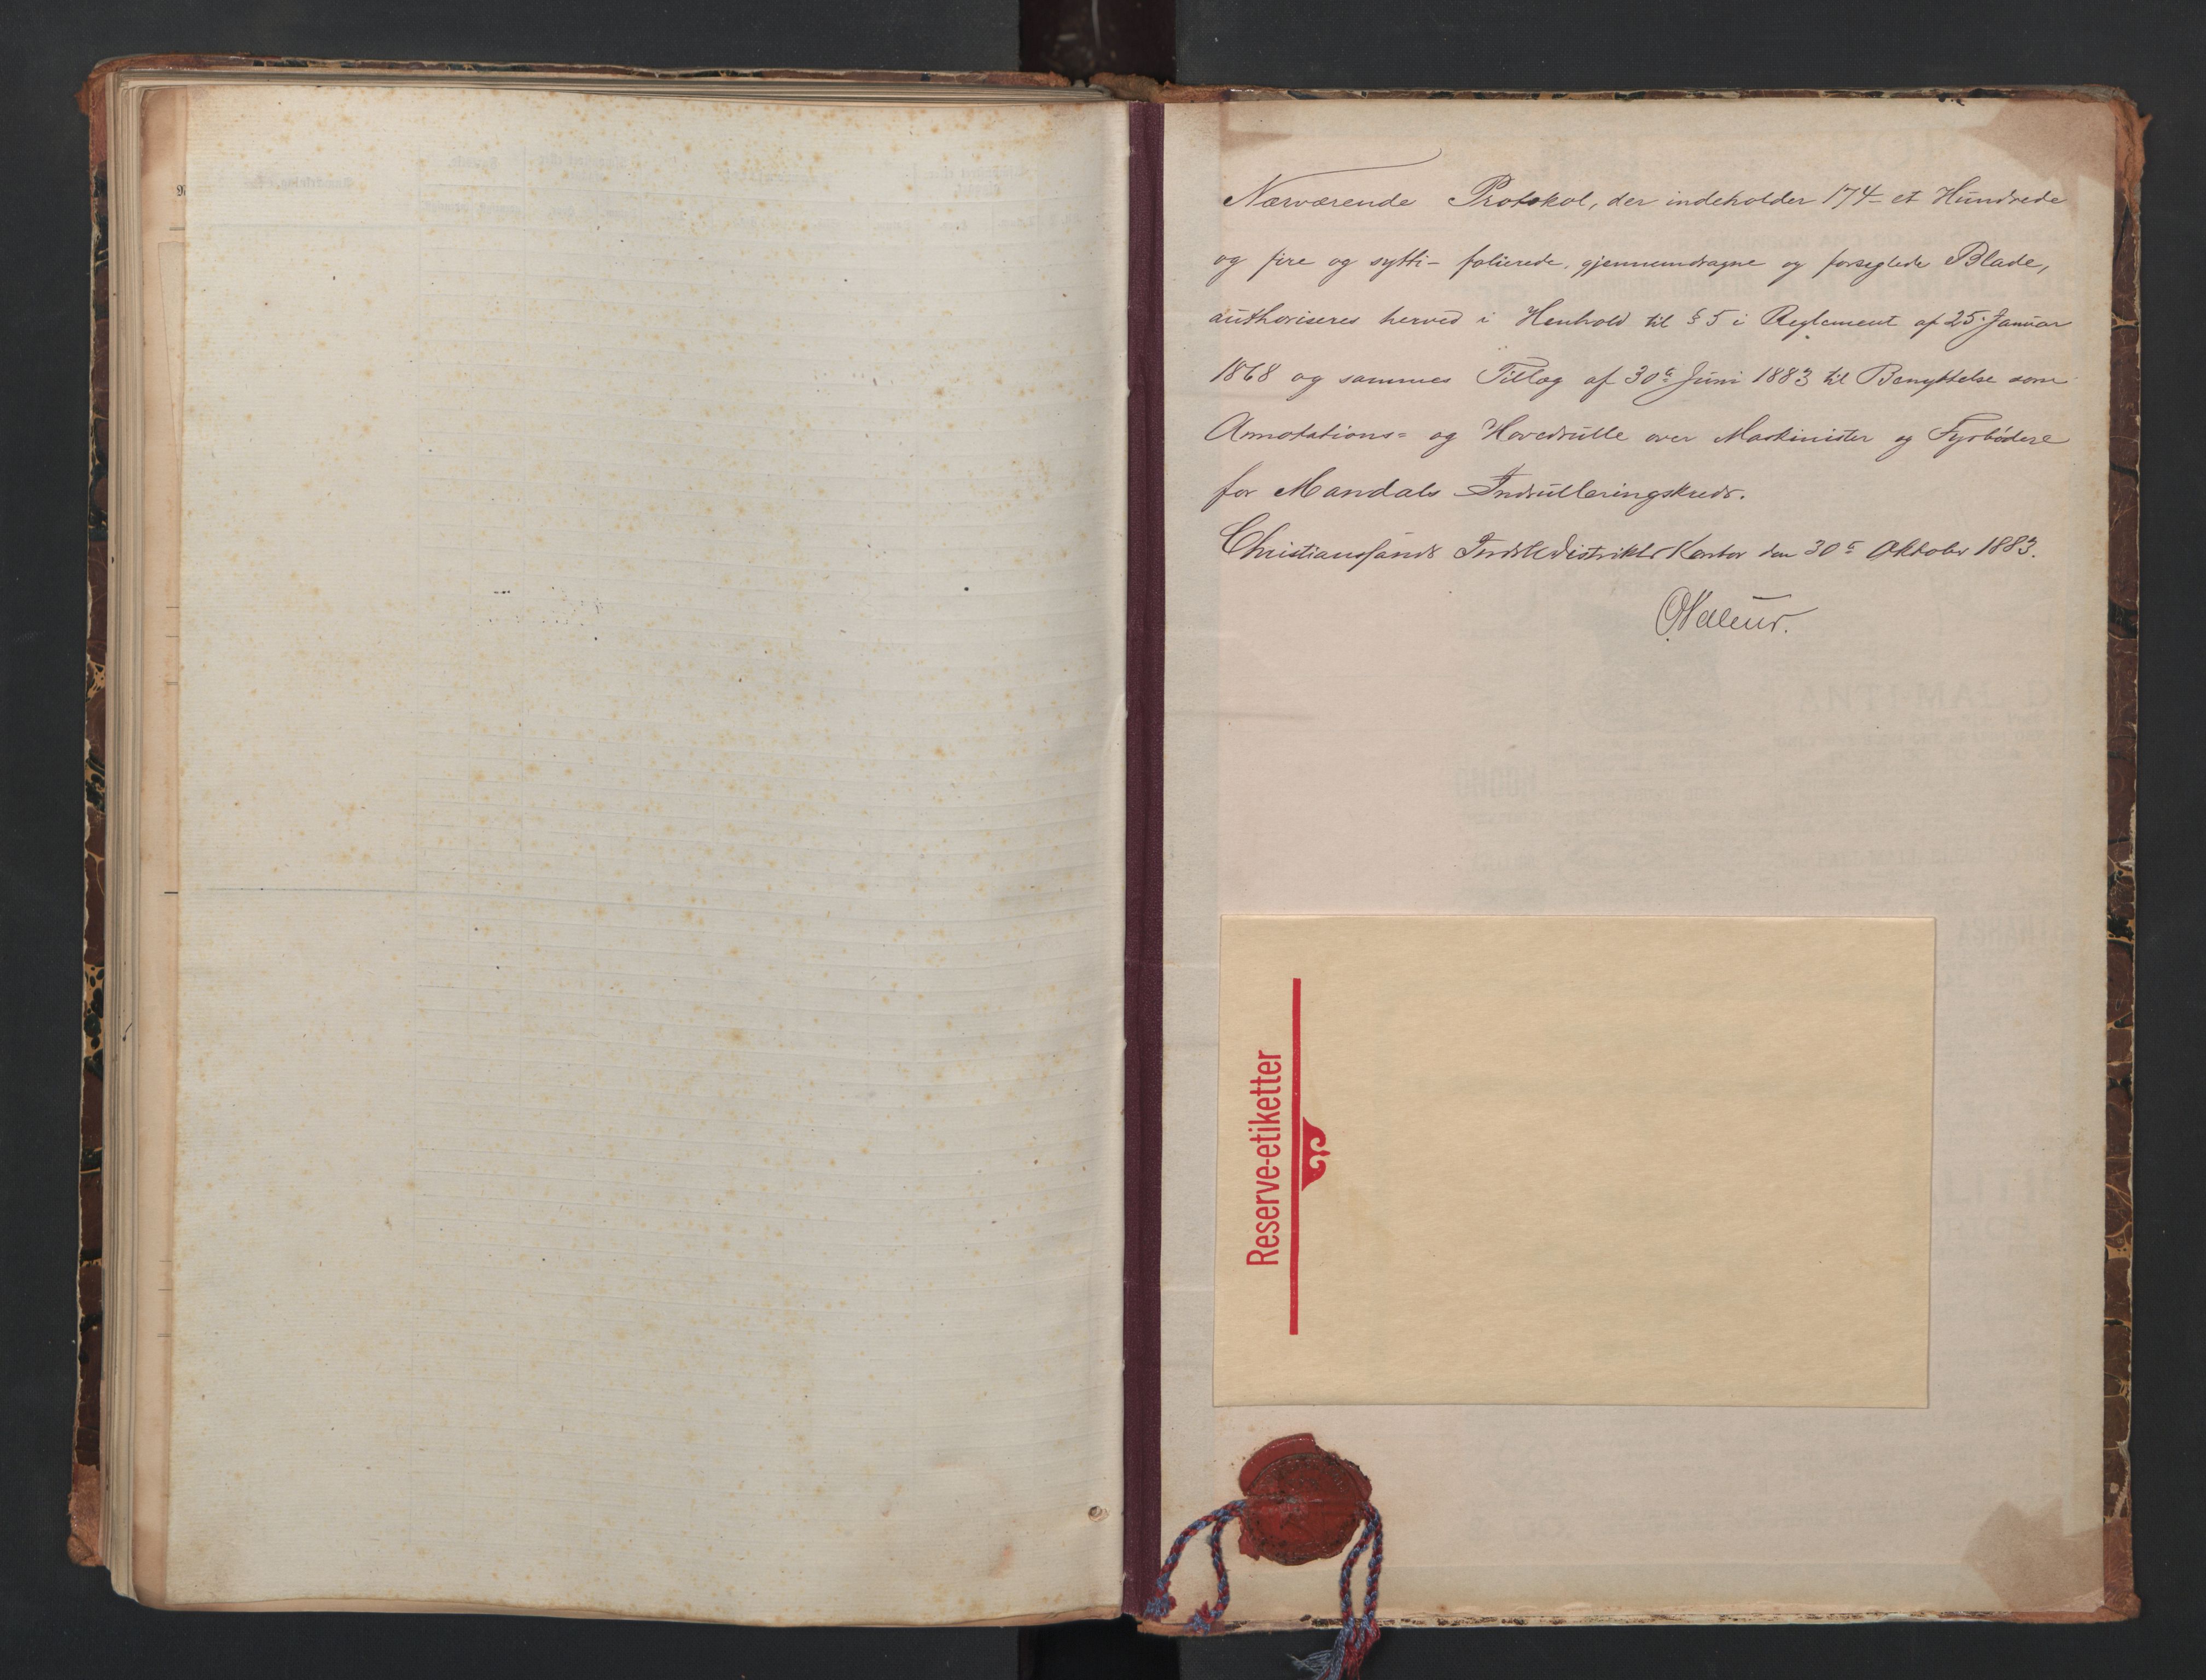 Nærværende Protokol, der indeholder 174 - et Hundrede
og fire og sytti - folierede, gjennemdragne og forseglede Blade,
authoriseres herved i Henhold til § 5 i Reglement af 25. Januar
1868 og sammes Tillæg af 30te Juni 1883 til Benyttelse som
Annotations= og Hovedrulle over Maskinister og Fyrbødere
for Mandals Indrulleringskreds.
Christianssands Distrikts Kontor den 30te Oktober 1883.
Reserve-etiketter